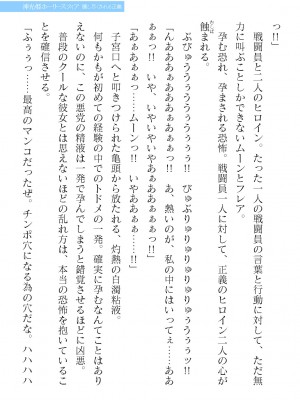 戦闘員と二人のヒロイン。たった一人の戦闘員の言葉と行動に対して、ただ無
力に叫ぶことしかできないムーンとフレア。
孕む恐れ、孕まされる恐怖。戦闘員一人に対して、正義のヒロイン二人の心が
蝕まれる。
かじば
ぶぴゅうぅぅぅぅぅぅ!! びゅぶりゅりゅりゅりゅぅぅぅぅッ!!
「んあああぁぁぁぁッ!! あ、熱いのが、私の中にはいってぇ……ああ
あぁぁぁッ!! いや、いやいやいやああああぁぁぁッ!!」
「ああぁぁッ……ムーンっ!! いやあああぁぁぁ……!!」
子宮口へと叩きつけられた亀頭から放たれる、灼熱の白濁粘液。
何もかもが初めての経験の中でのトドメの一発。確実に孕むなんてことはあり
えないのに、この悪党の精液は一発で孕んでしまうと錯覚させるほどに凶悪。
普段のクールな彼女とは思えないほどの乱れ方は、本当の恐怖を抱いているこ
とを確信させる。
「ふぅぅっ……最高のマンコだったぜ。チンポ穴になる為の穴だな。ハハハハ